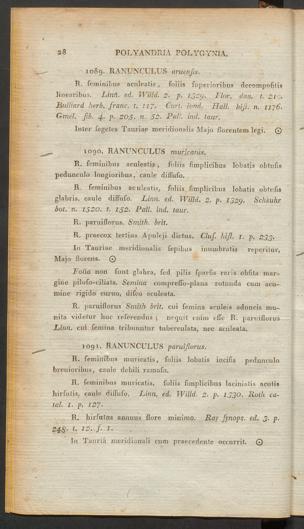 28 POLYANDRIA POLYGYNIA.
1089. RANUNCULUS arvensis.
R. seminibus aculeatis, foliis superioribus decompositis
linearibus. Linn. ed. Willd. 2. p. 1329. Flor. dan. t. 219.
Bulliard herb. franc. t. 117. Curt. lond. Hall. hist. n. 1176.
Gmel. sib. 4. p. 205. n. 52. Pall. ind. taur.
Inter segetes Tauriae meridionalis Majo florentem legi. ☉
1090. RANUNCULUS muricatus.
R. seminibus aculeatis, foliis simplicibus lobatis obtusis
pedunculo longioribus, caule diffuso.
R. seminibus aculeatis, foliis simplicibus lobatis obtusis
glabris, caule diffuso. Linn. ed. Willd. 2. p. 1329. Schkuhr
bot. n. 1520. t. 152. Pall. ind. taur.
R. parviflorus. Smith. brit.
R. praecox tertius Apuleji dictus. Clus. hist. 1. p. 233.
In Tauriae meridionalis sepibus inumbratis reperitur,
Majo florens. ☉
Folia non sunt glabra, sed pilis sparsis raris obsita mar-
gine piloso-ciliata. Semina compresso-plana rotunda cum acu-
mine rigido curvo, disco aculeata.
R. parviflorus Smith brit. cui semina aculeis aduncis mu-
nita videtur huc referendus; nequit enim esse R. parviflorus
Linn. cui semina tribuuntur tuberculata, nec aculeata.
1091. RANUNCULUS parviflorus.
R. seminibus muricatis, foliis lobatis incisis pedunculo
brevioribus, caule debili ramoso.
R. seminibus muricatis, foliis simplicibus laciniatis acutis
hirsutis, caule diffuso. Linn. ed. Willd. 2. p. 1330. Roth ca-
tal. 1. p. 127.
R. hirsutus annuus flore minimo. Ray synops. ed. 3. p.
248. t. 12. f. 1.
In Tauria meridionali cum praecedente occurrit. ☉